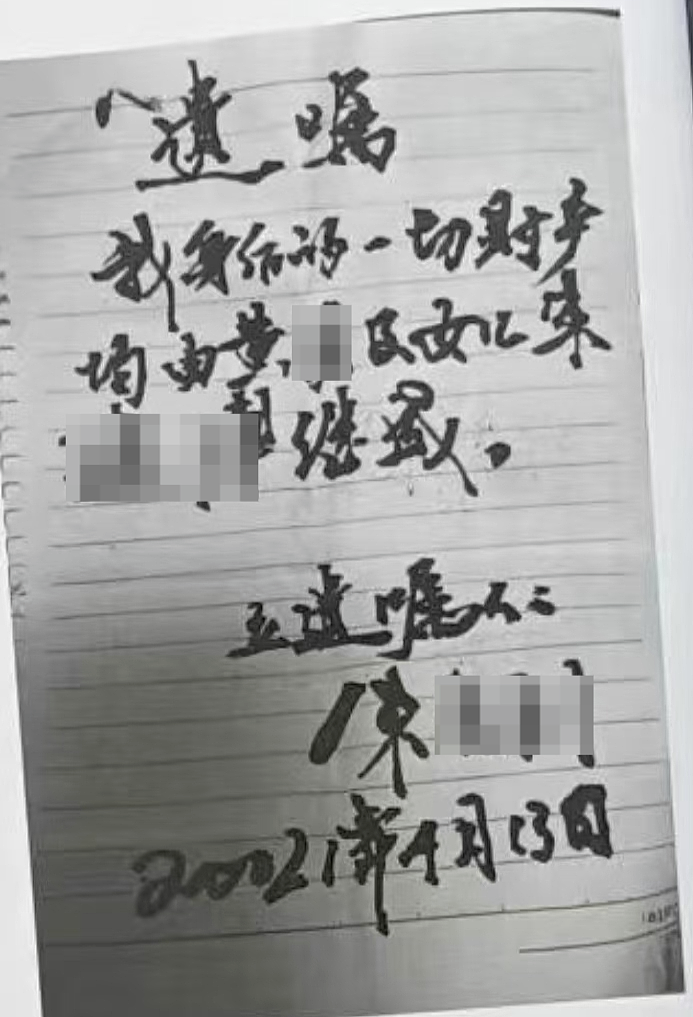 遗嘱
我身后的一切财产
均由黄及女儿
继承。
立遗嘱人:
陈
20021年4月13日